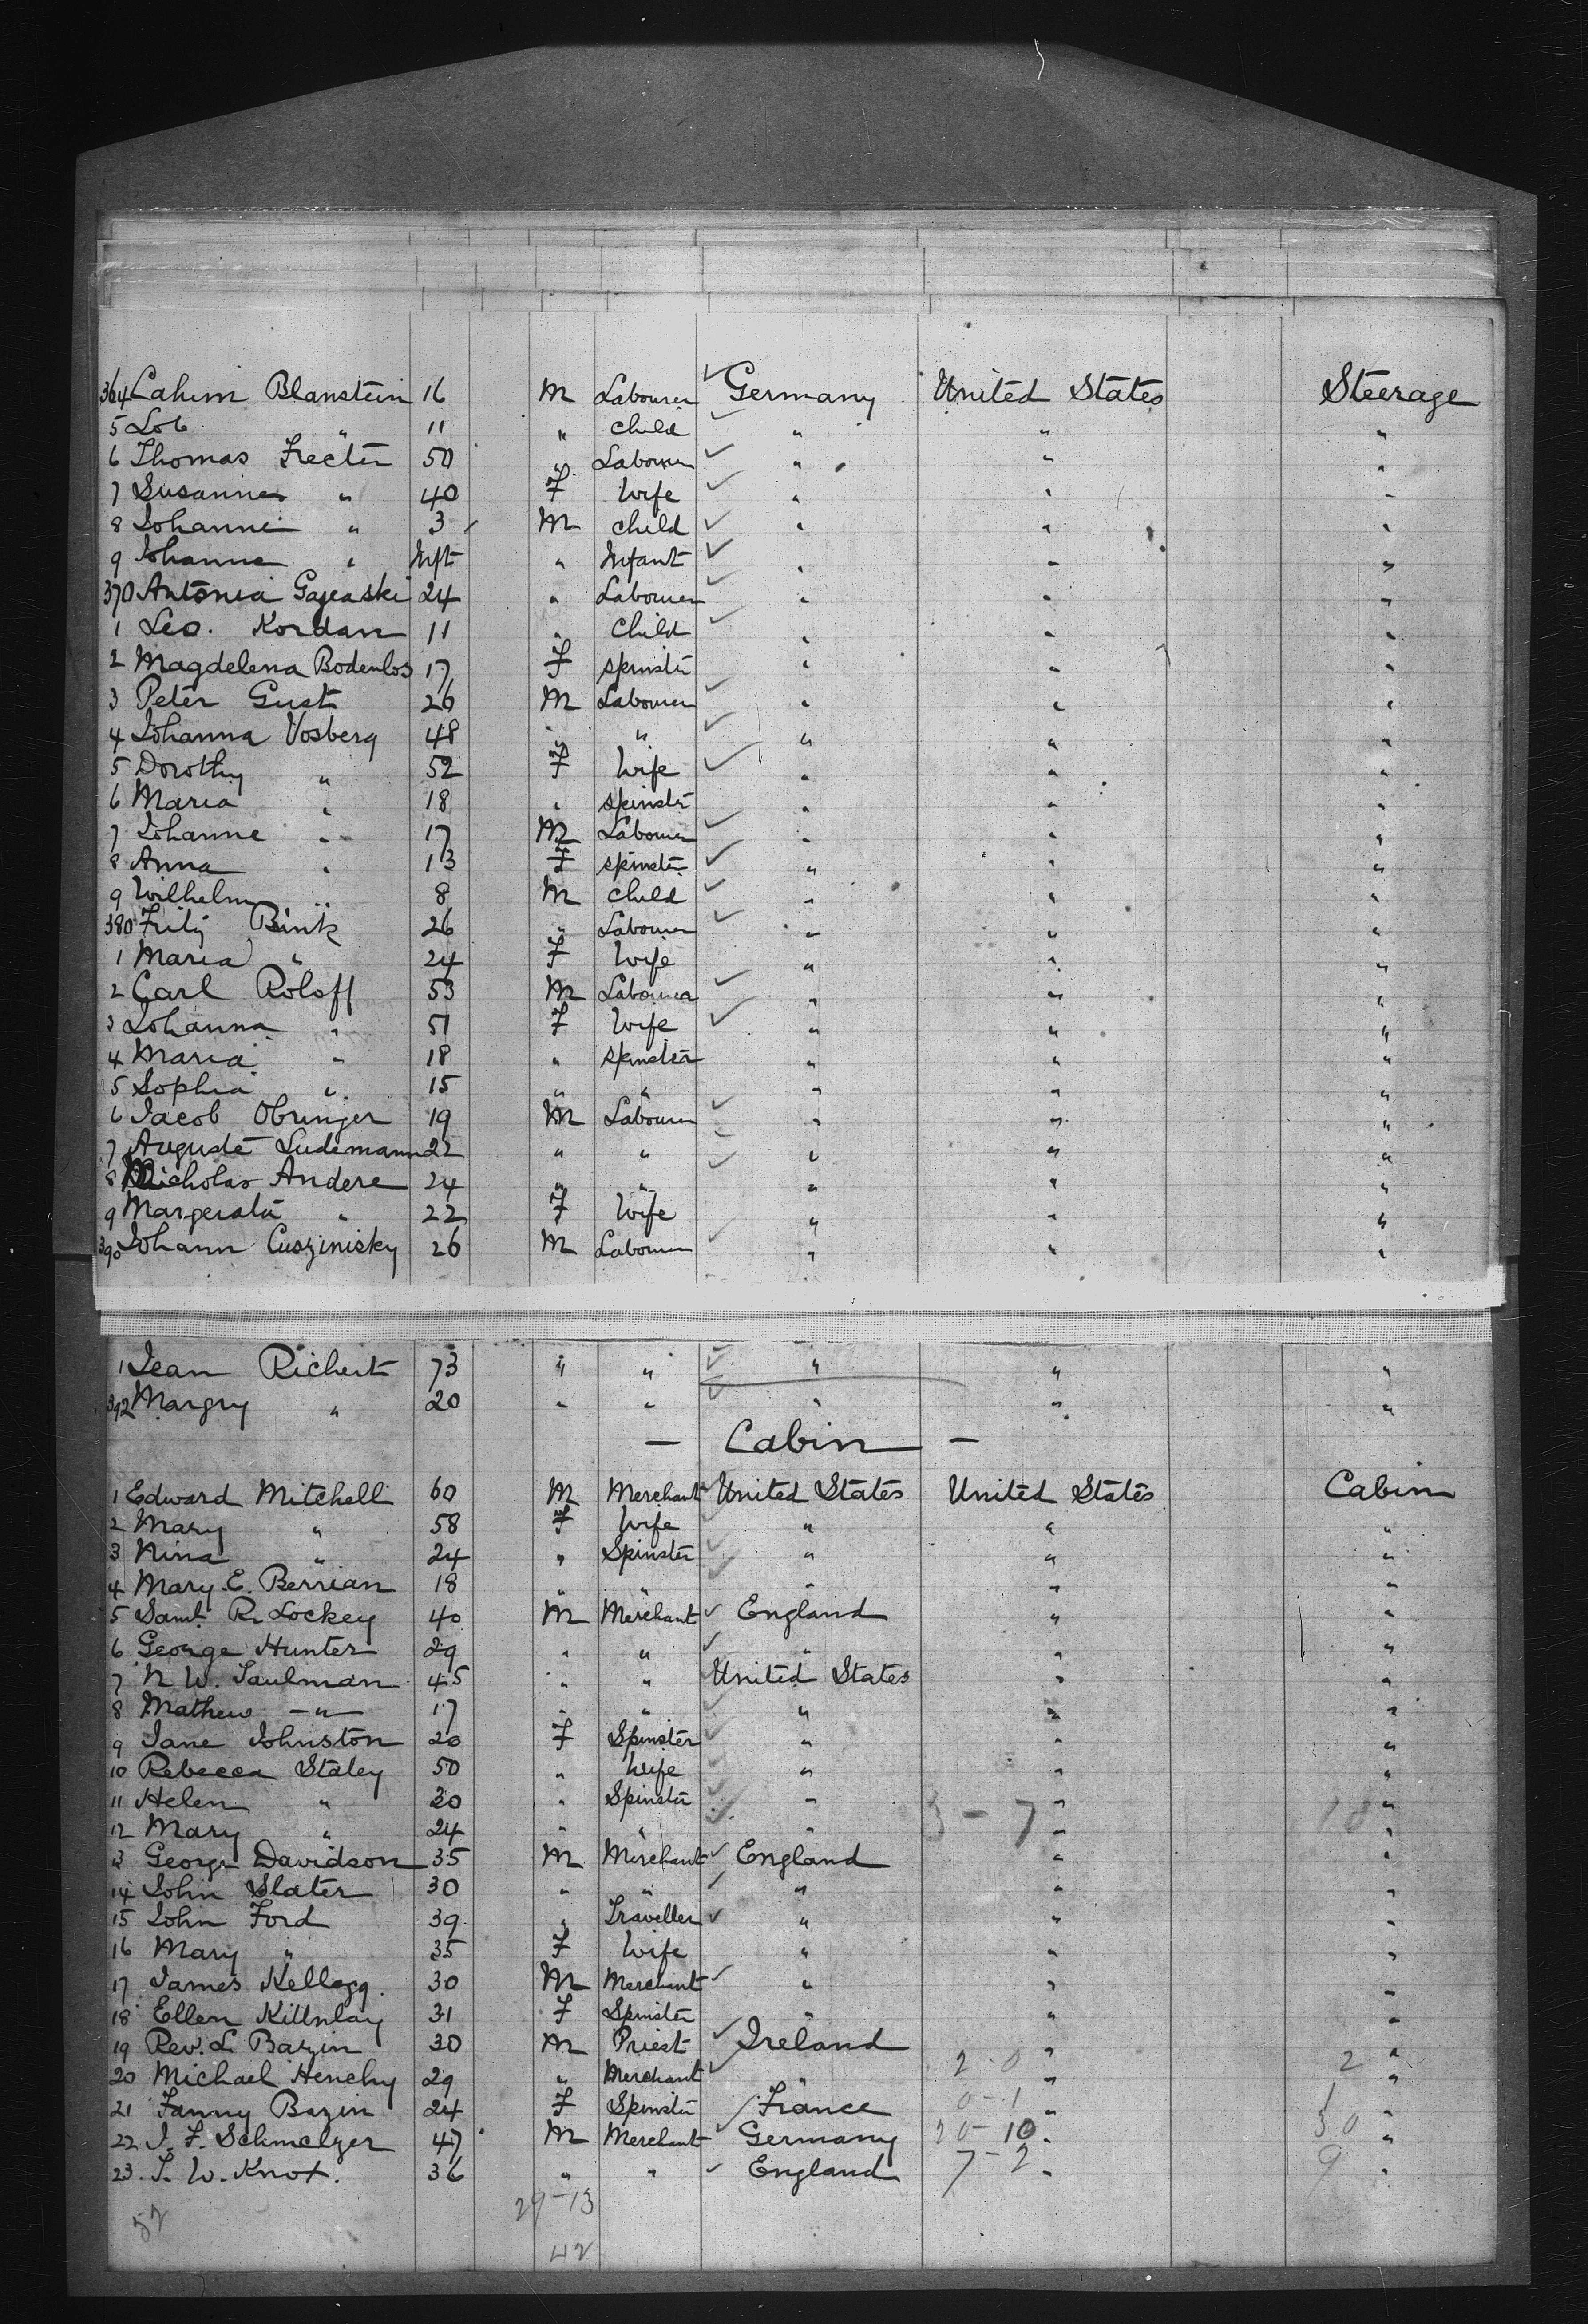 364 Lahim Blanstein 16 M Labourer Germany United States Steerage
5 Lob " 11 " child " " "
6 Thomas Frecter 50 " Labourer " " "
7 Susanna " 40 F Wife " " "
8 Johanne " 3 M child " " "
9 Johanna " Inft " Infant " " "
370 Antonia Gajeaski 24 " Labourer " " "
1 Leo. Kordan 11 " child " " "
2 Magdelena Bodenlos 17 F spinster " " "
3 Peter Gust 26 M Labourer " " "
4 Johanna Vosberg 48 " " " " "
5 Dorothy " 52 F Wife " " "
6 Maria " 18 " spinster " " "
7 Johanne " 17 M Labourer " " "
8 Anna " 13 F spinster " " "
9 Wilhelm " 8 M child " " "
380 Fritz Bink 26 " Labourer " " "
1 Maria " 24 F Wife " " "
2 Carl Roloff 53 M Labourer " " "
3 Johanna " 51 F Wife " " "
4 Maria " 18 " spinster " " "
5 Sophia " 15 " " " " "
6 Jacob Obringer 19 M Labourer " " "
7 Auguste Ludemann 22 " " " " "
8 Nicholas Andere 24 " " " " "
9 Margerata " 22 F Wife " " "
390 Johann Cuszinisky 26 M Labourer " " "
1 Jean Richert 73 " " " " "
392 Margry " 20 " " " " "
— Cabin —
1 Edward Mitchell 60 M Merchant United States United States Cabin
2 Mary " 58 F Wife " " "
3 Nina " 24 " Spinster " " "
4 Mary E. Berrian 18 " " " " "
5 Saml. R. Lockey 40 M Merchant England " "
6 George Hunter 29 " " " " "
7 N W. Taulman 45 " " United States " "
8 Mathew —"— 17 " " " " "
9 Jane Johnston 20 F Spinster " " "
10 Rebecca Staley 50 " Wife " " "
11 Helen " 20 " Spinster " " "
12 Mary " 24 " " " 3-7 " 10 "
13 George Davidson 35 M Merchant England " "
14 John Slater 30 " " " " "
15 John Ford 39 " Traveller " " "
16 Mary " 35 F Wife " " "
17 James Kellogg. 30 M Merchant " " "
18 Ellen Killnlay 31 F Spinster " " "
19 Rev. L. Bazin 30 M Priest Ireland " "
20 Michael Henchy 29 " Merchant " 2-0 " 2 "
21 Fanny Bazin 24 F Spinster France 0-1 " 1 "
22 J. F. Schmelzer 47 M Merchant Germany 20-10 " 30 "
23. T. W. Knox. 36 " " England 7-2 " 9 "
29-13
52
42